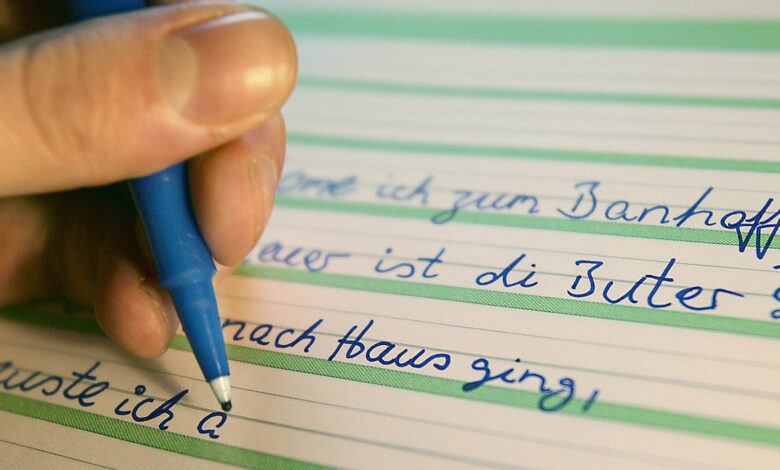 ome ich zum Banhoff
auer ist di Buter
nach Haus ging,
uste ich a